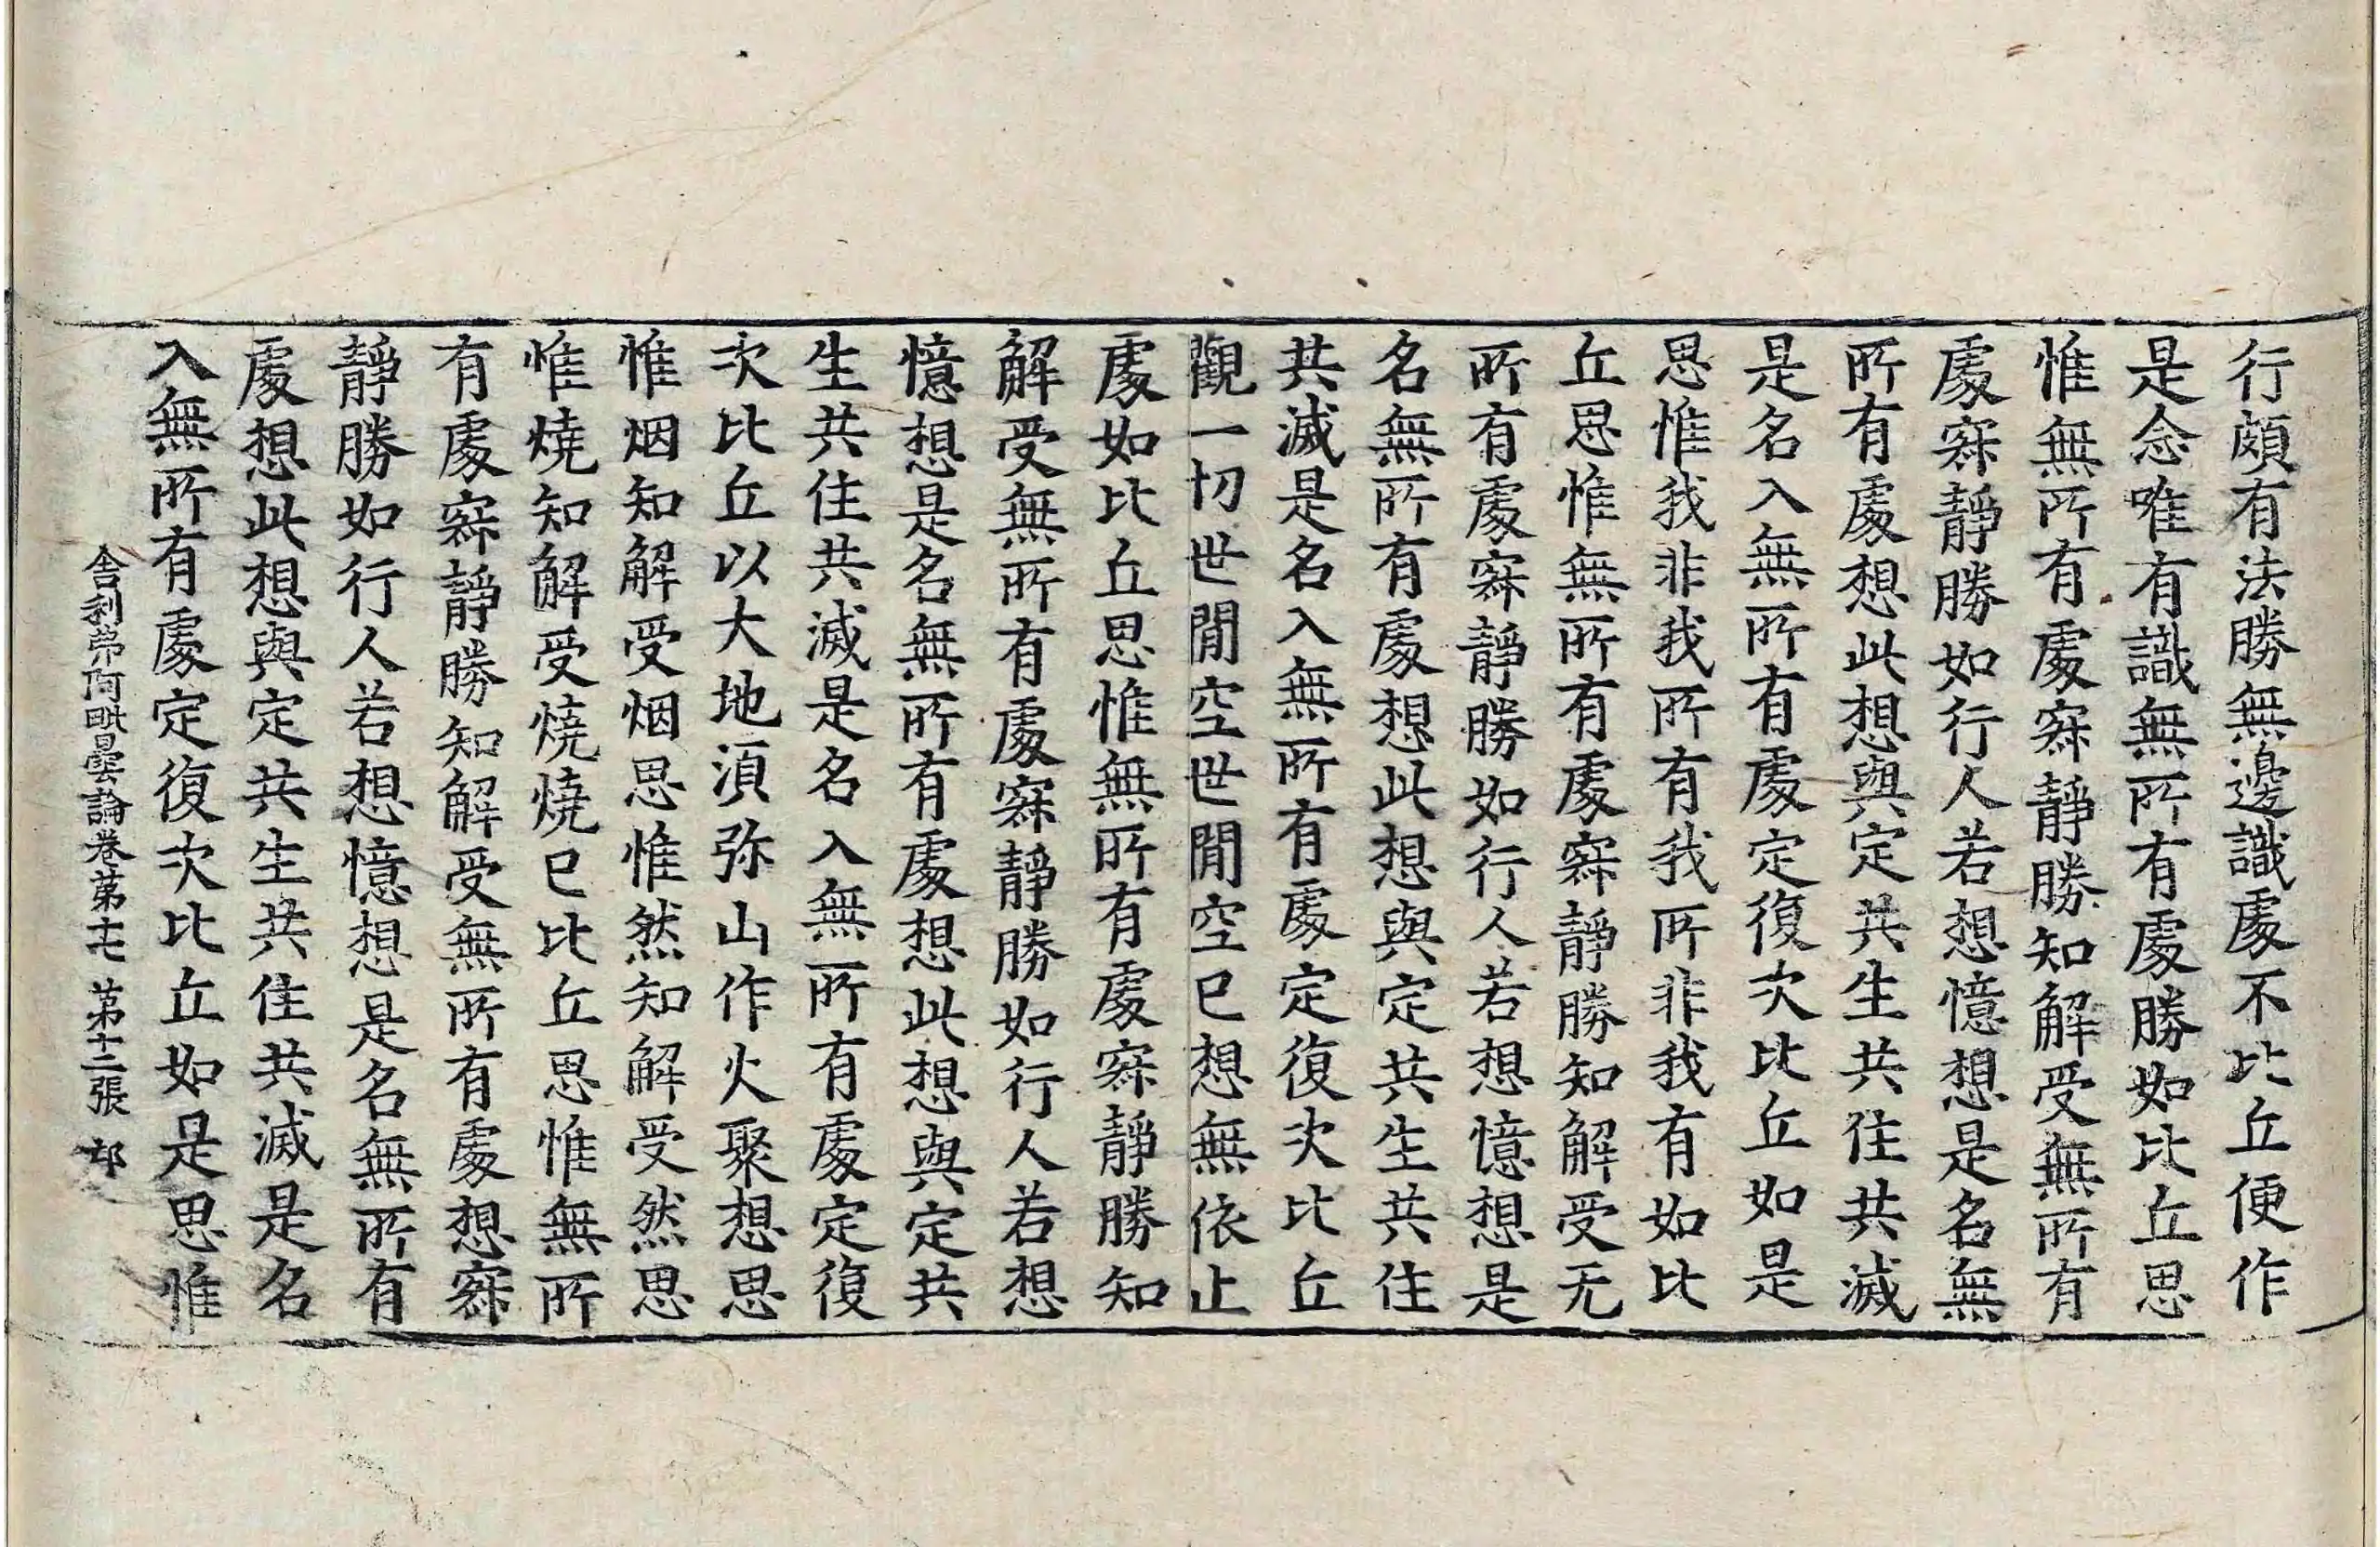 行頗有法勝無邊識處不比丘便作
是念唯有識無所有處勝如比丘思
惟無所有處寂靜勝知解受無所有
處寂靜勝如行人若想憶想是名無
所有處想此想與定共生共住共滅
是名入無所有處定復次比丘如是
思惟我非我所有我所非我有如比
丘思惟無所有處寂靜勝知解受无
所有處寂靜勝如行人若想憶想是
名無所有處想此想與定共生共住
共滅是名入無所有處定復次比丘
觀一切世間空世間空已想無依止
處如比丘思惟無所有處寂靜勝知
解受無所有處寂靜勝如行人若想
憶想是名無所有處想此想與定共
生共住共滅是名入無所有處定復
次比丘以大地須弥山作火聚想思
惟烟知解受烟思惟然知解受然思
惟燒知解受燒燒已比丘思惟無所
有處寂靜勝知解受無所有處想寂
靜勝如行人若想憶想是名無所有
處想此想與定共生共住共滅是名
入無所有處定復次比丘如是思惟
舍利弗阿毗曇論卷第十七 第十二張